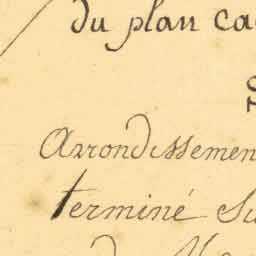 du plan ca
Arrondissemen
terminé su